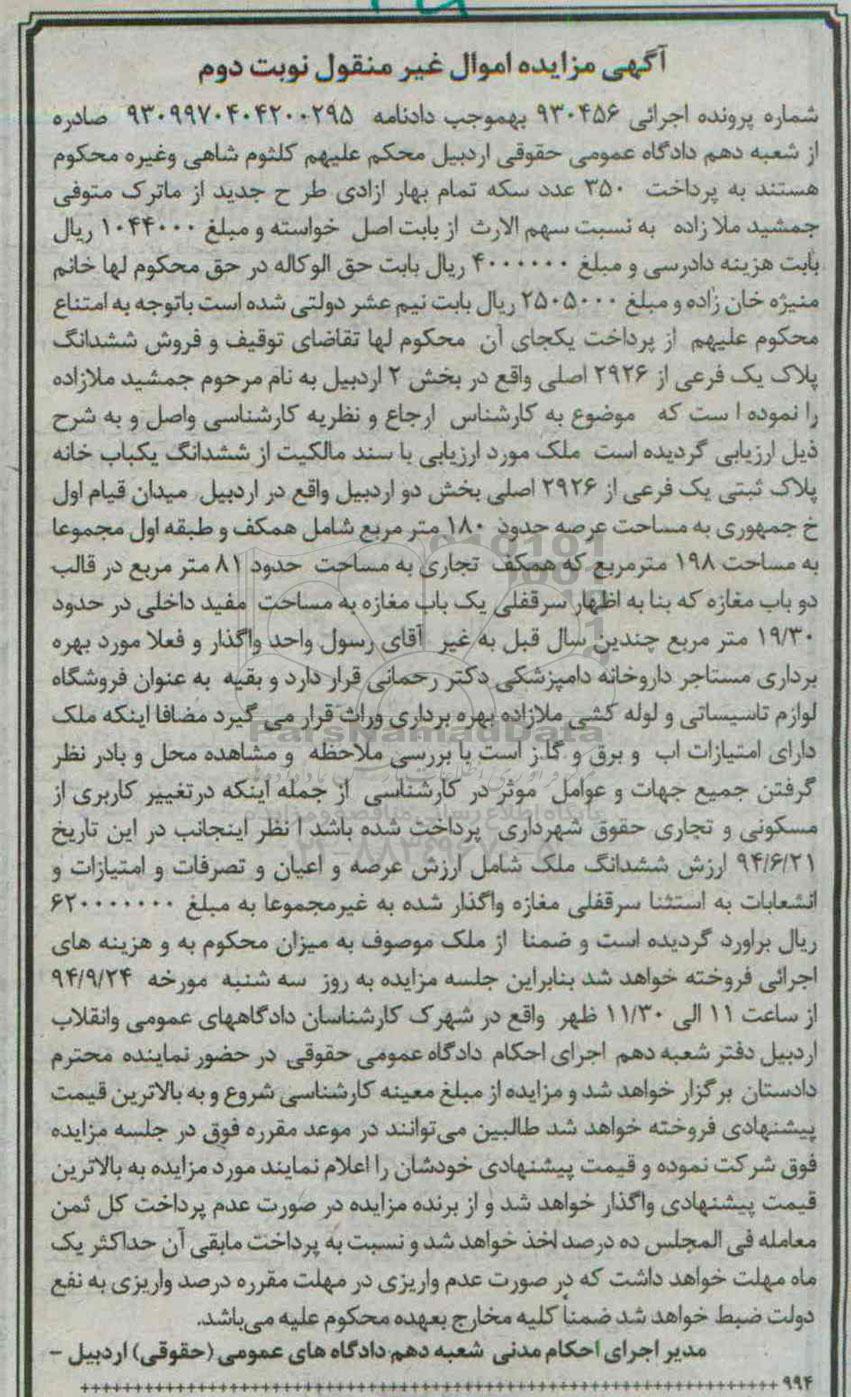 آگهی مزایده اموال غیر منقول نوبت دوم
شماره پرونده اجرائی ۹۳۰۴۵۶ بهموجب دادنامه ۹۳۰۹۹۷۰۴۰۴۲۰۰۲۹۵ صادره
از شعبه دهم دادگاه عمومی حقوقی اردبیل محکم علیهم کلثوم شاهی وغیره محکوم
هستند به پرداخت ۳۵۰ عدد سکه تمام بهار ازادی طر ح جدید از ماترک متوفی
جمشید ملا زاده به نسبت سهم الارث از بابت اصل خواسته و مبلغ ۱۰۴۴۰۰۰ ریال
بابت هزینه دادرسی و مبلغ ۴۰۰۰۰۰۰ ریال بابت حق الوکاله در حق محکوم لها خانم
منیژه خان زاده و مبلغ ۲۵۰۵۰۰۰ ریال بابت نیم عشر دولتی شده است باتوجه به امتناع
محکوم علیهم از پرداخت یکجای آن محکوم لها تقاضای توقیف و فروش ششدانگ
پلاک یک فرعی از ۲۹۲۶ اصلی واقع در بخش ۲ اردبیل به نام مرحوم جمشید ملازاده
را نموده ا ست که موضوع به کارشناس ارجاع و نظریه کارشناسی واصل و به شرح
ذیل ارزیابی گردیده است ملک مورد ارزیابی با سند مالکیت از ششدانگ یکباب خانه
پلاک ثبتی یک فرعی از ۲۹۲۶ اصلی بخش دو اردبیل واقع در اردبیل میدان قیام اول
خ جمهوری به مساحت عرصه حدود ۱۸۰ متر مربع شامل همکف و طبقه اول مجموعا
به مساحت ۱۹۸ مترمربع که همکف تجاری به مساحت حدود ۸۱ متر مربع در قالب
دو باب مغازه که بنا به اظهار سرقفلی یک باب مغازه به مساحت مفید داخلی در حدود
۱۹/۳۰ متر مربع چندین سال قبل به غیر آقای رسول واحد واگذار و فعلا مورد بهره
برداری مستاجر داروخانه دامپزشکی دکتر رحمانی قرار دارد و بقیه به عنوان فروشگاه
لوازم تاسیساتی و لوله کشی ملازاده بهره برداری وراث قرار می گیرد مضافا اینکه ملک
ParsNamadData
دارای امتیازات اب و برق و گاز است با بررسی ملاحظه و مشاهده محل و بادر نظر
گرفتن جمیع جهات و عوامل موثر در کارشناسی از جمله اینکه درتغییر کاربری از
مسکونی و تجاری حقوق شهرداری پرداخت شده باشد ا نظر اینجانب در این تاریخ
۹۴/۶/۲۱ ارزش ششدانگ ملک شامل ارزش عرصه و اعیان و تصرفات و امتیازات و
انشعابات به استثنا سرقفلی مغازه واگذار شده به غیرمجموعا به مبلغ ۶۲۰۰۰۰۰۰۰۰
ریال براورد گردیده است و ضمنا از ملک موصوف به میزان محکوم به و هزینه های
اجرائی فروخته خواهد شد بنابراین جلسه مزایده به روز سه شنبه مورخه ۹۴/۹/۲۴
از ساعت ۱۱ الی ۱۱/۳۰ ظهر واقع در شهرک کارشناسان دادگاههای عمومی وانقلاب
اردبیل دفتر شعبه دهم اجرای احکام دادگاه عمومی حقوقی در حضور نماینده محترم
دادستان برگزار خواهد شد و مزایده از مبلغ معینه کارشناسی شروع و به بالاترین قیمت
پیشنهادی فروخته خواهد شد طالبین می‌توانند در موعد مقرره فوق در جلسه مزایده
فوق شرکت نموده و قیمت پیشنهادی خودشان را اعلام نمایند مورد مزایده به بالاترین
قیمت پیشنهادی واگذار خواهد شد و از برنده مزایده در صورت عدم پرداخت کل ثمن
معامله فی المجلس ده درصد اخذ خواهد شد و نسبت به پرداخت مابقی آن حداکثر یک
ماه مهلت خواهد داشت که در صورت عدم واریزی در مهلت مقرره درصد واریزی به نفع
دولت ضبط خواهد شد ضمناً کلیه مخارج بعهده محکوم علیه می‌باشد.
مدیر اجرای احکام مدنی شعبه دهم دادگاه های عمومی (حقوقی) اردبیل -
۹۹۴